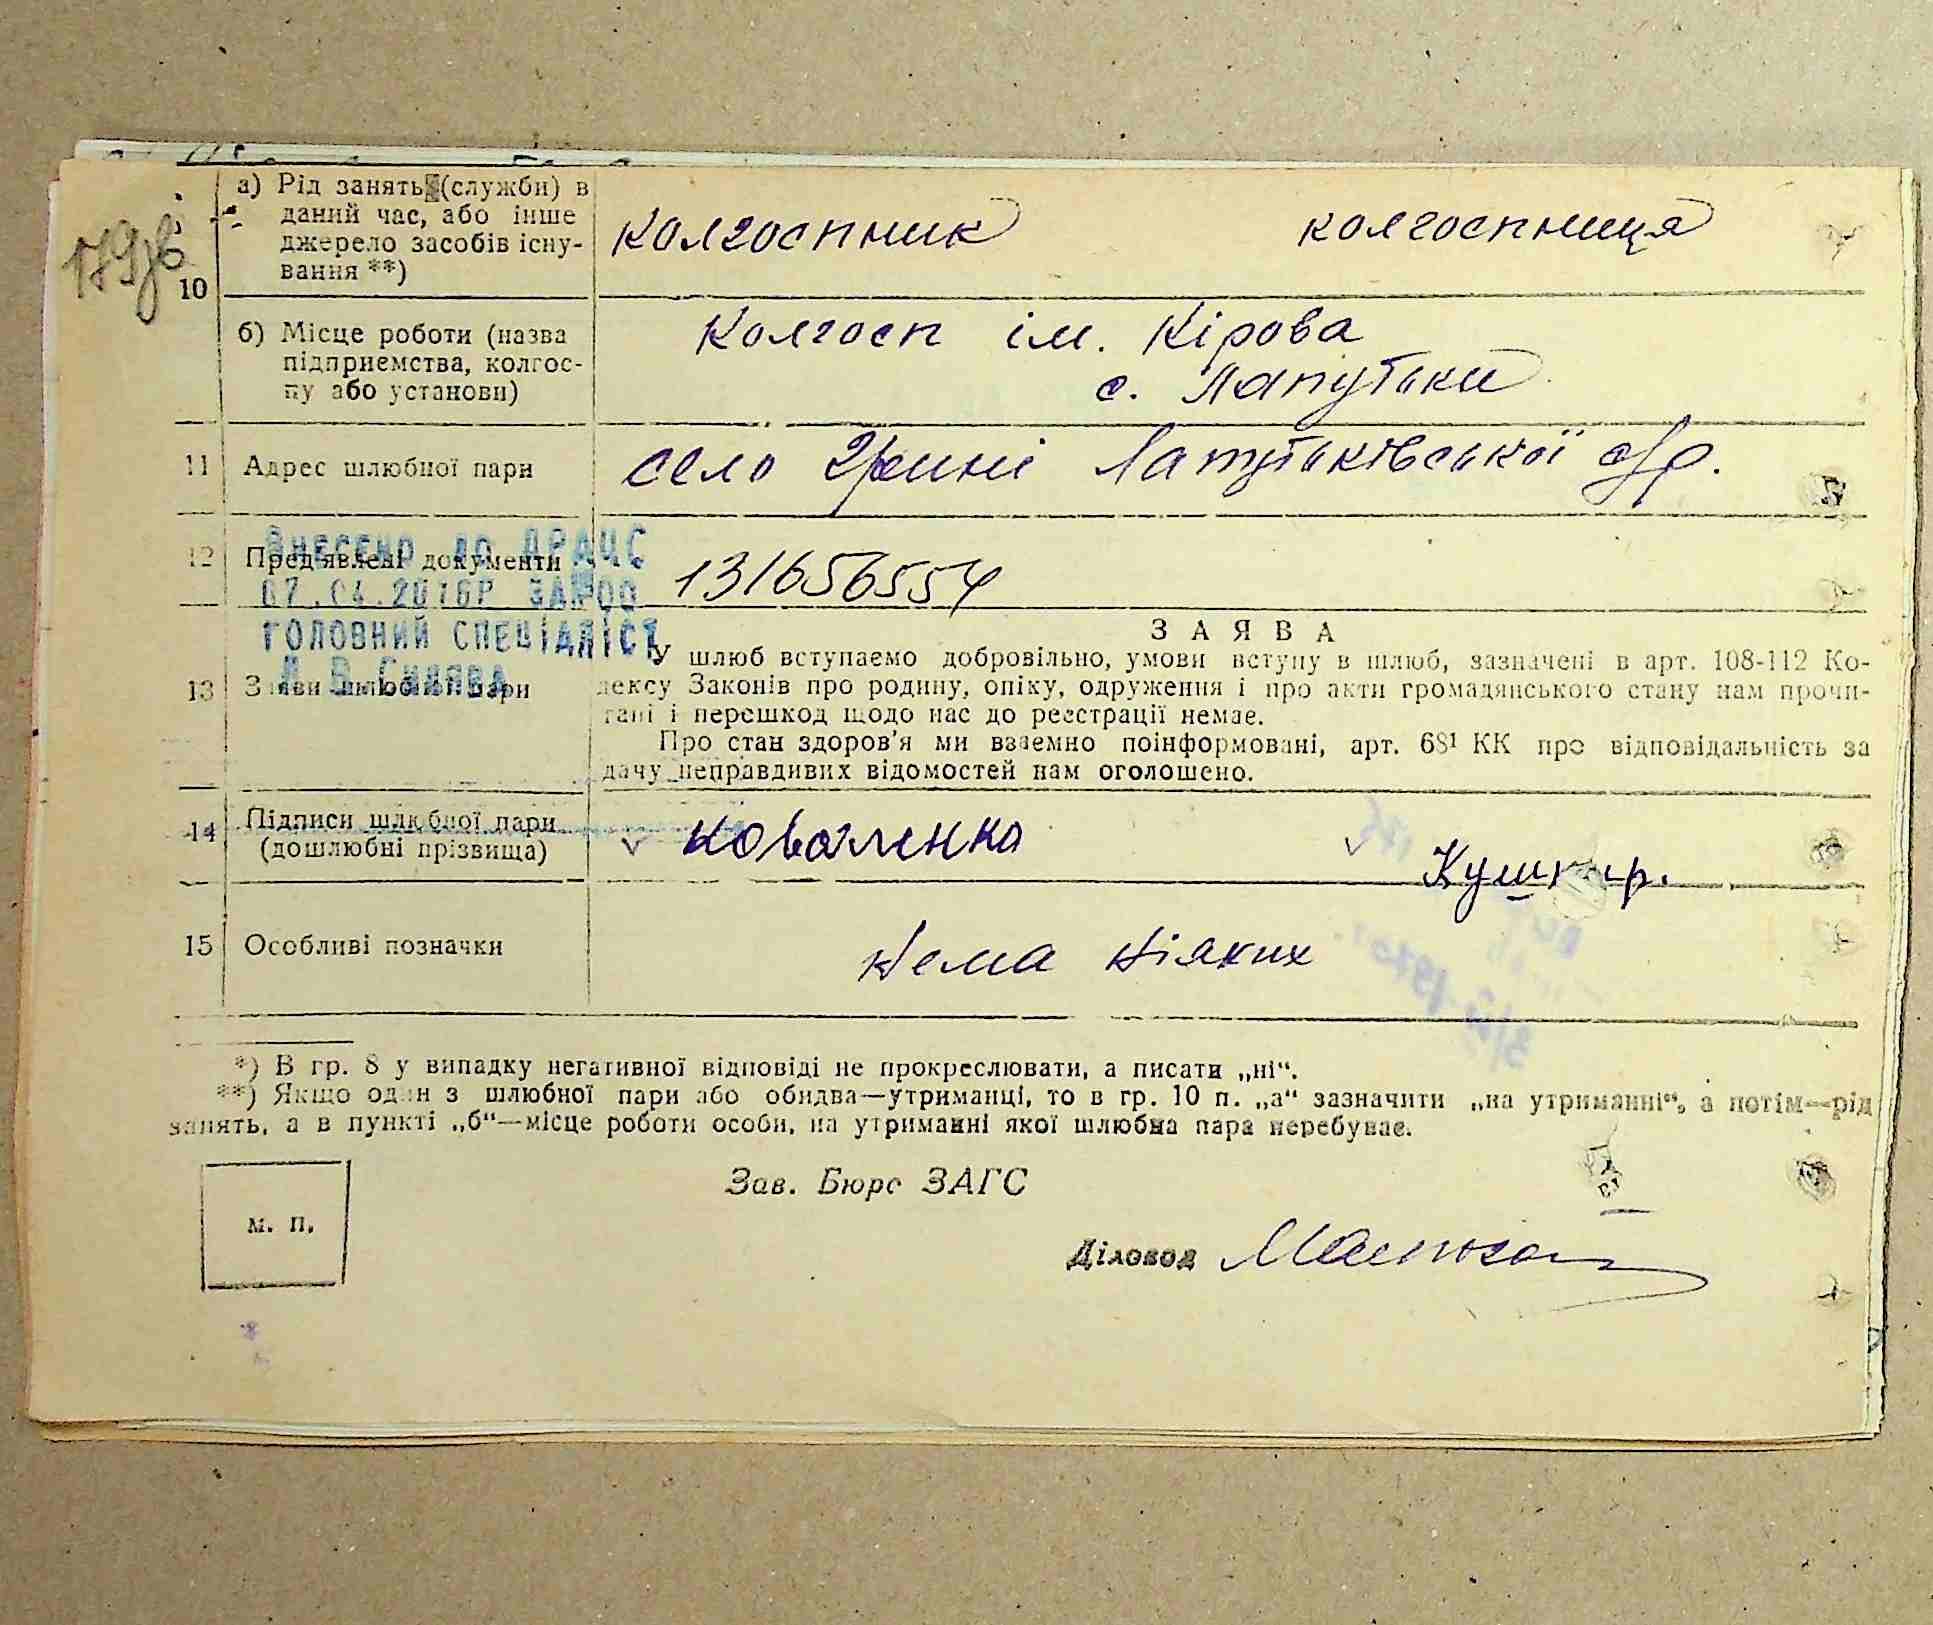 179зв
10
а) Рід занять (служби) в
даний час, або інше
джерело засобів існу-
вання **)
колгоспник колгоспниця
б) Місце роботи (назва
підприємства, колгос-
пу або установи)
Колгосп ім. Кірова
с. Лапутьки
11 Адрес шлюбної пари
село Грині Лапутьківської с/р.
12 Пред'явлені документи
131656554
Внесено до ДРАЦС
07.04.2016Р
ГОЛОВНИЙ СПЕЦІАЛІСТ
13 Заяви шлюбної пари
ЗАЯВА
У шлюб вступаємо добровільно, умови вступу в шлюб, зазначені в арт. 108-112 Ко-
дексу Законів про родину, опіку, одруження і про акти громадянського стану нам прочи-
тані і перешкод щодо нас до реєстрації немає.
Про стан здоров'я ми взаємно поінформовані, арт. 68¹ КК про відповідальність за
дачу неправдивих відомостей нам оголошено.
14 Підписи шлюбної пари
(дошлюбні прізвища)
v Коваленко v Кушнір.
15 Особливі позначки
Нема ніяких
*) В гр. 8 у випадку негативної відповіді не прокреслювати, а писати „ні“.
**) Якщо один з шлюбної пари або обидва—утриманці, то в гр. 10 п. „а“ зазначити „на утриманні“, а потім—рід
занять, а в пункті „б“—місце роботи особи, на утриманні якої шлюбна пара перебуває.
Зав. Бюро ЗАГС
м. п.
Діловод